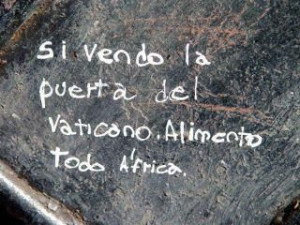 si vendo la
puerta del
Vaticano. Alimento
todo África.